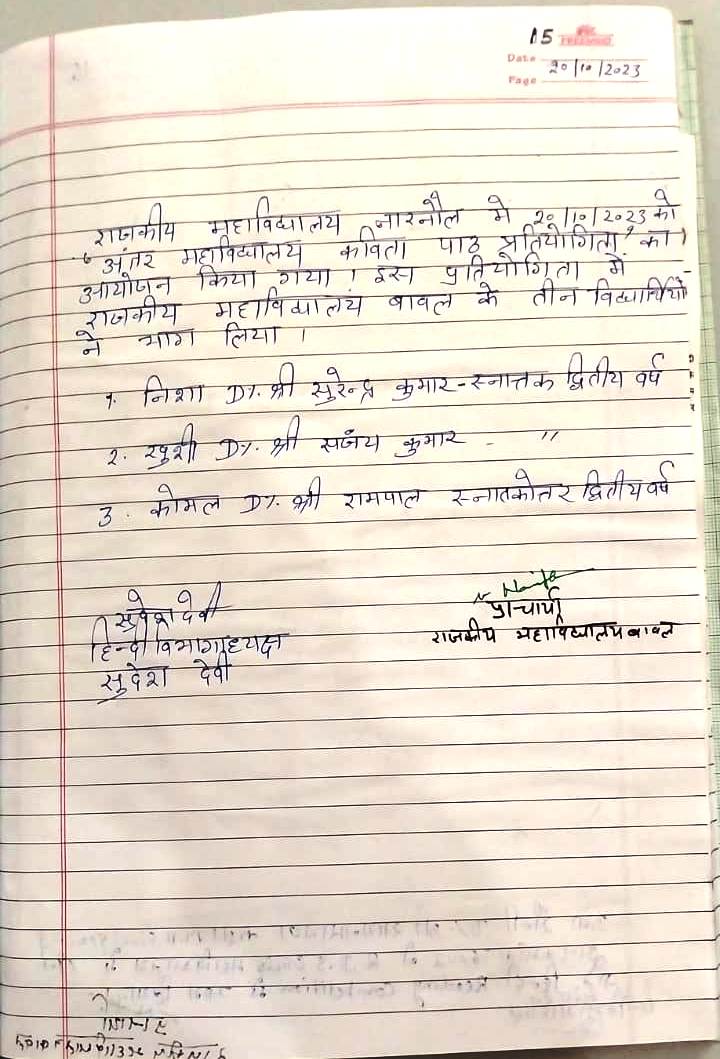 15
Date 20/10/2023
Page
राजकीय महाविद्यालय नारनौल मे 20/10/2023 को
'अंतर महाविद्यालय कविता पाठ प्रतियोगिता' का
आयोजन किया गया । इस प्रतियोगिता में
राजकीय महाविद्यालय बावल के तीन विद्यार्थियों
ने भाग लिया ।
1. निशा D/. श्री सुरेन्द्र कुमार - स्नात्तक द्वितीय वर्ष
2. खुशी D/. श्री संजय कुमार - "
3. कोमल D/. श्री रामपाल स्नातकोतर द्वितीय वर्ष
सुदेश देवी
हिन्दी विभागाध्यक्ष
सुदेश देवी
प्राचार्या
राजकीय महाविद्यालय बावल